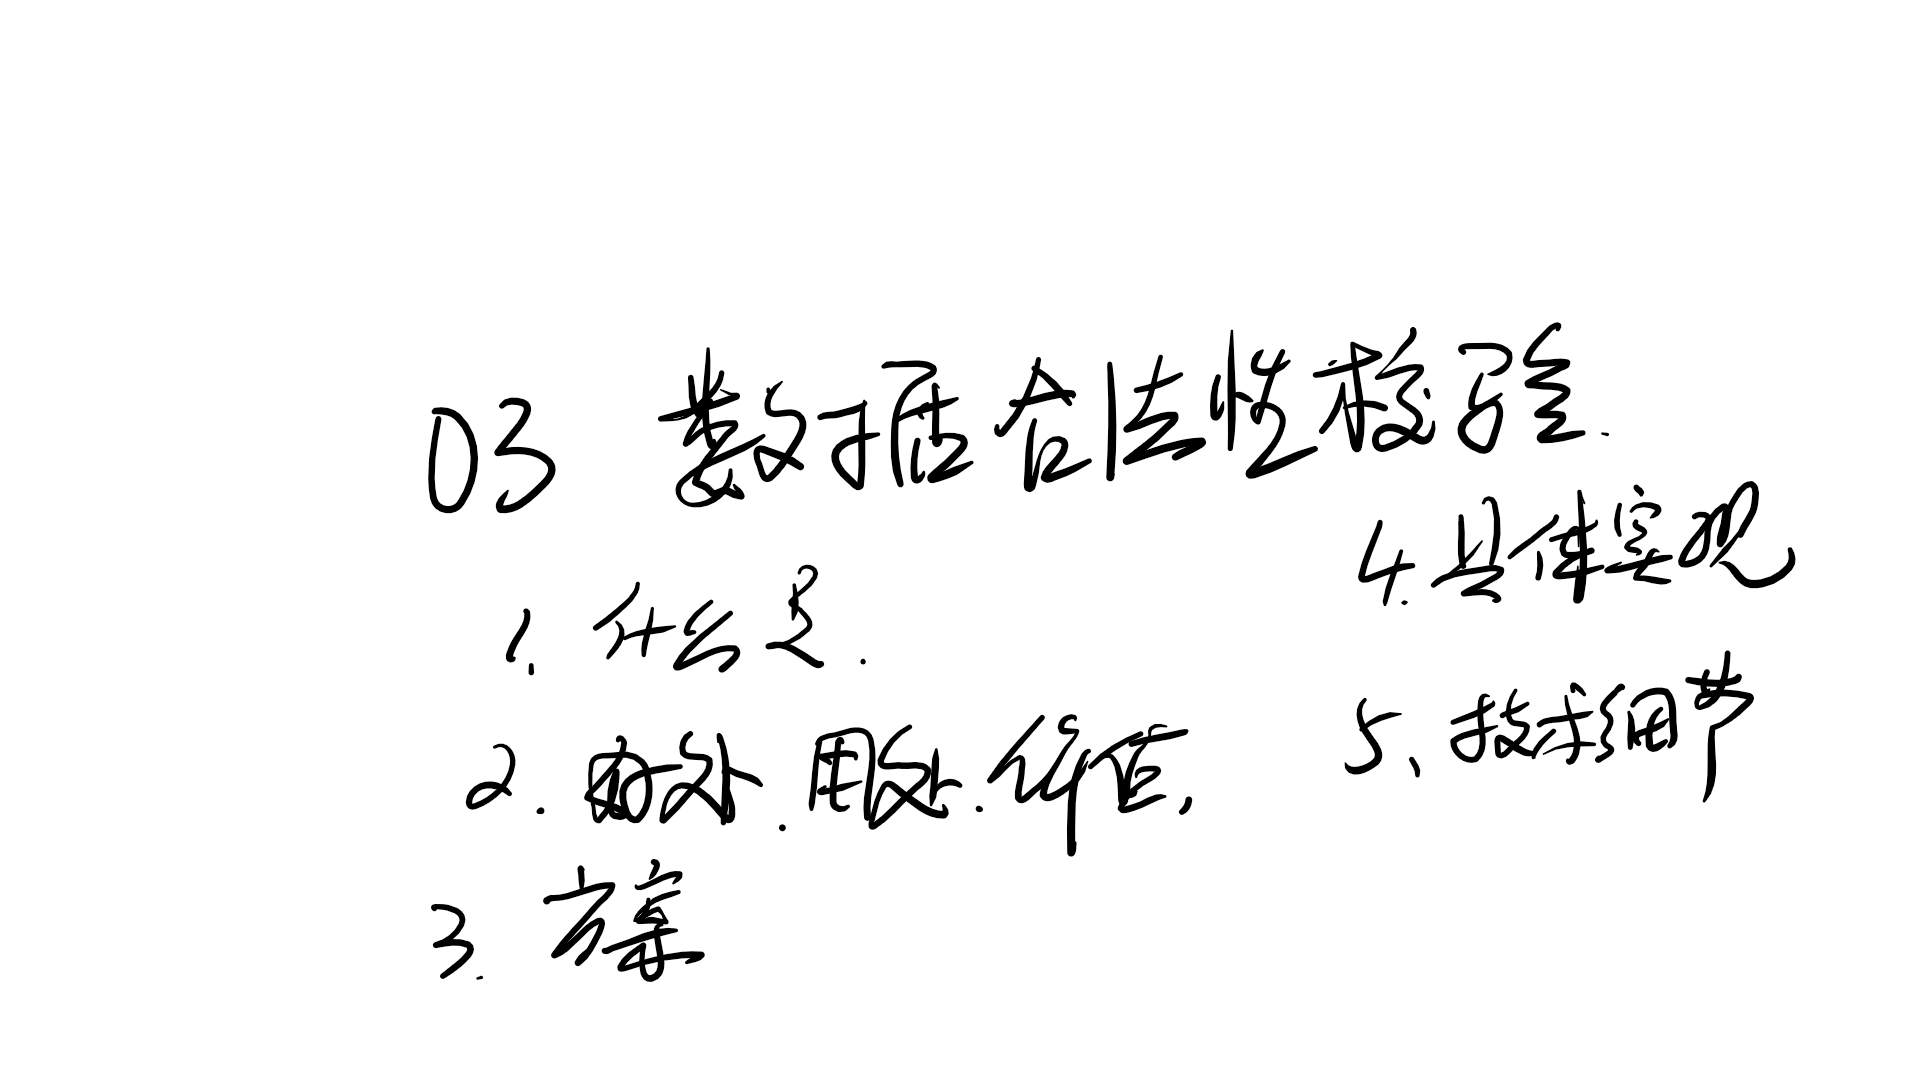 03 数据合法性校验.
1. 什么是.
2. 好处. 用处. 价值.
3. 方案
4. 具体实现
5、技术细节